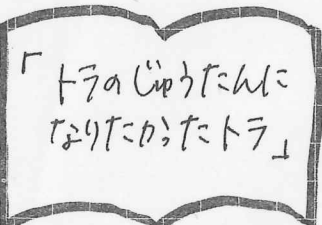 「トラのじゅうたんに
なりたかったトラ」